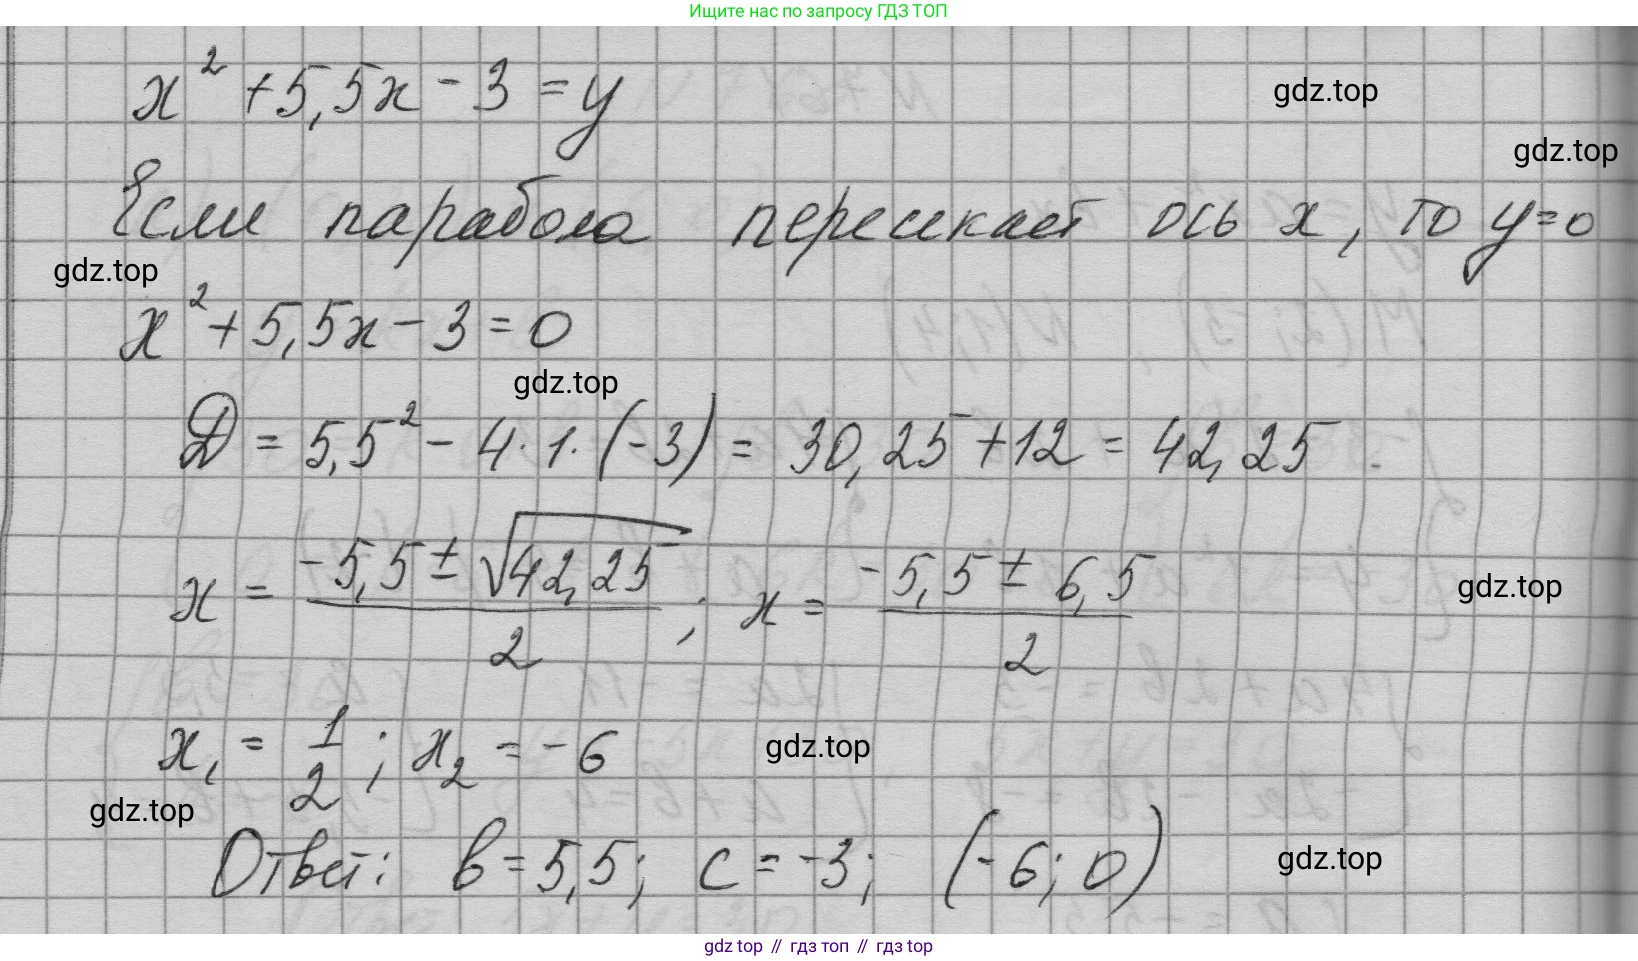 Ищите нас по запросу ГДЗ ТОП
x² + 5,5x - 3 = y
gdz.top
gdz.top
Если парабола пересекает ось x, то y=0
gdz.top
x² + 5,5x - 3 = 0
gdz.top
D = 5,5² - 4 · 1 · (-3) = 30,25 + 12 = 42,25
x = (-5,5 ± √42,25)/2 ; x = (-5,5 ± 6,5)/2
gdz.top
x₁ = 1/2 ; x₂ = -6
gdz.top
gdz.top
Ответ: b = 5,5; c = -3; (-6; 0)
gdz.top
gdz top // гдз топ // гдз top